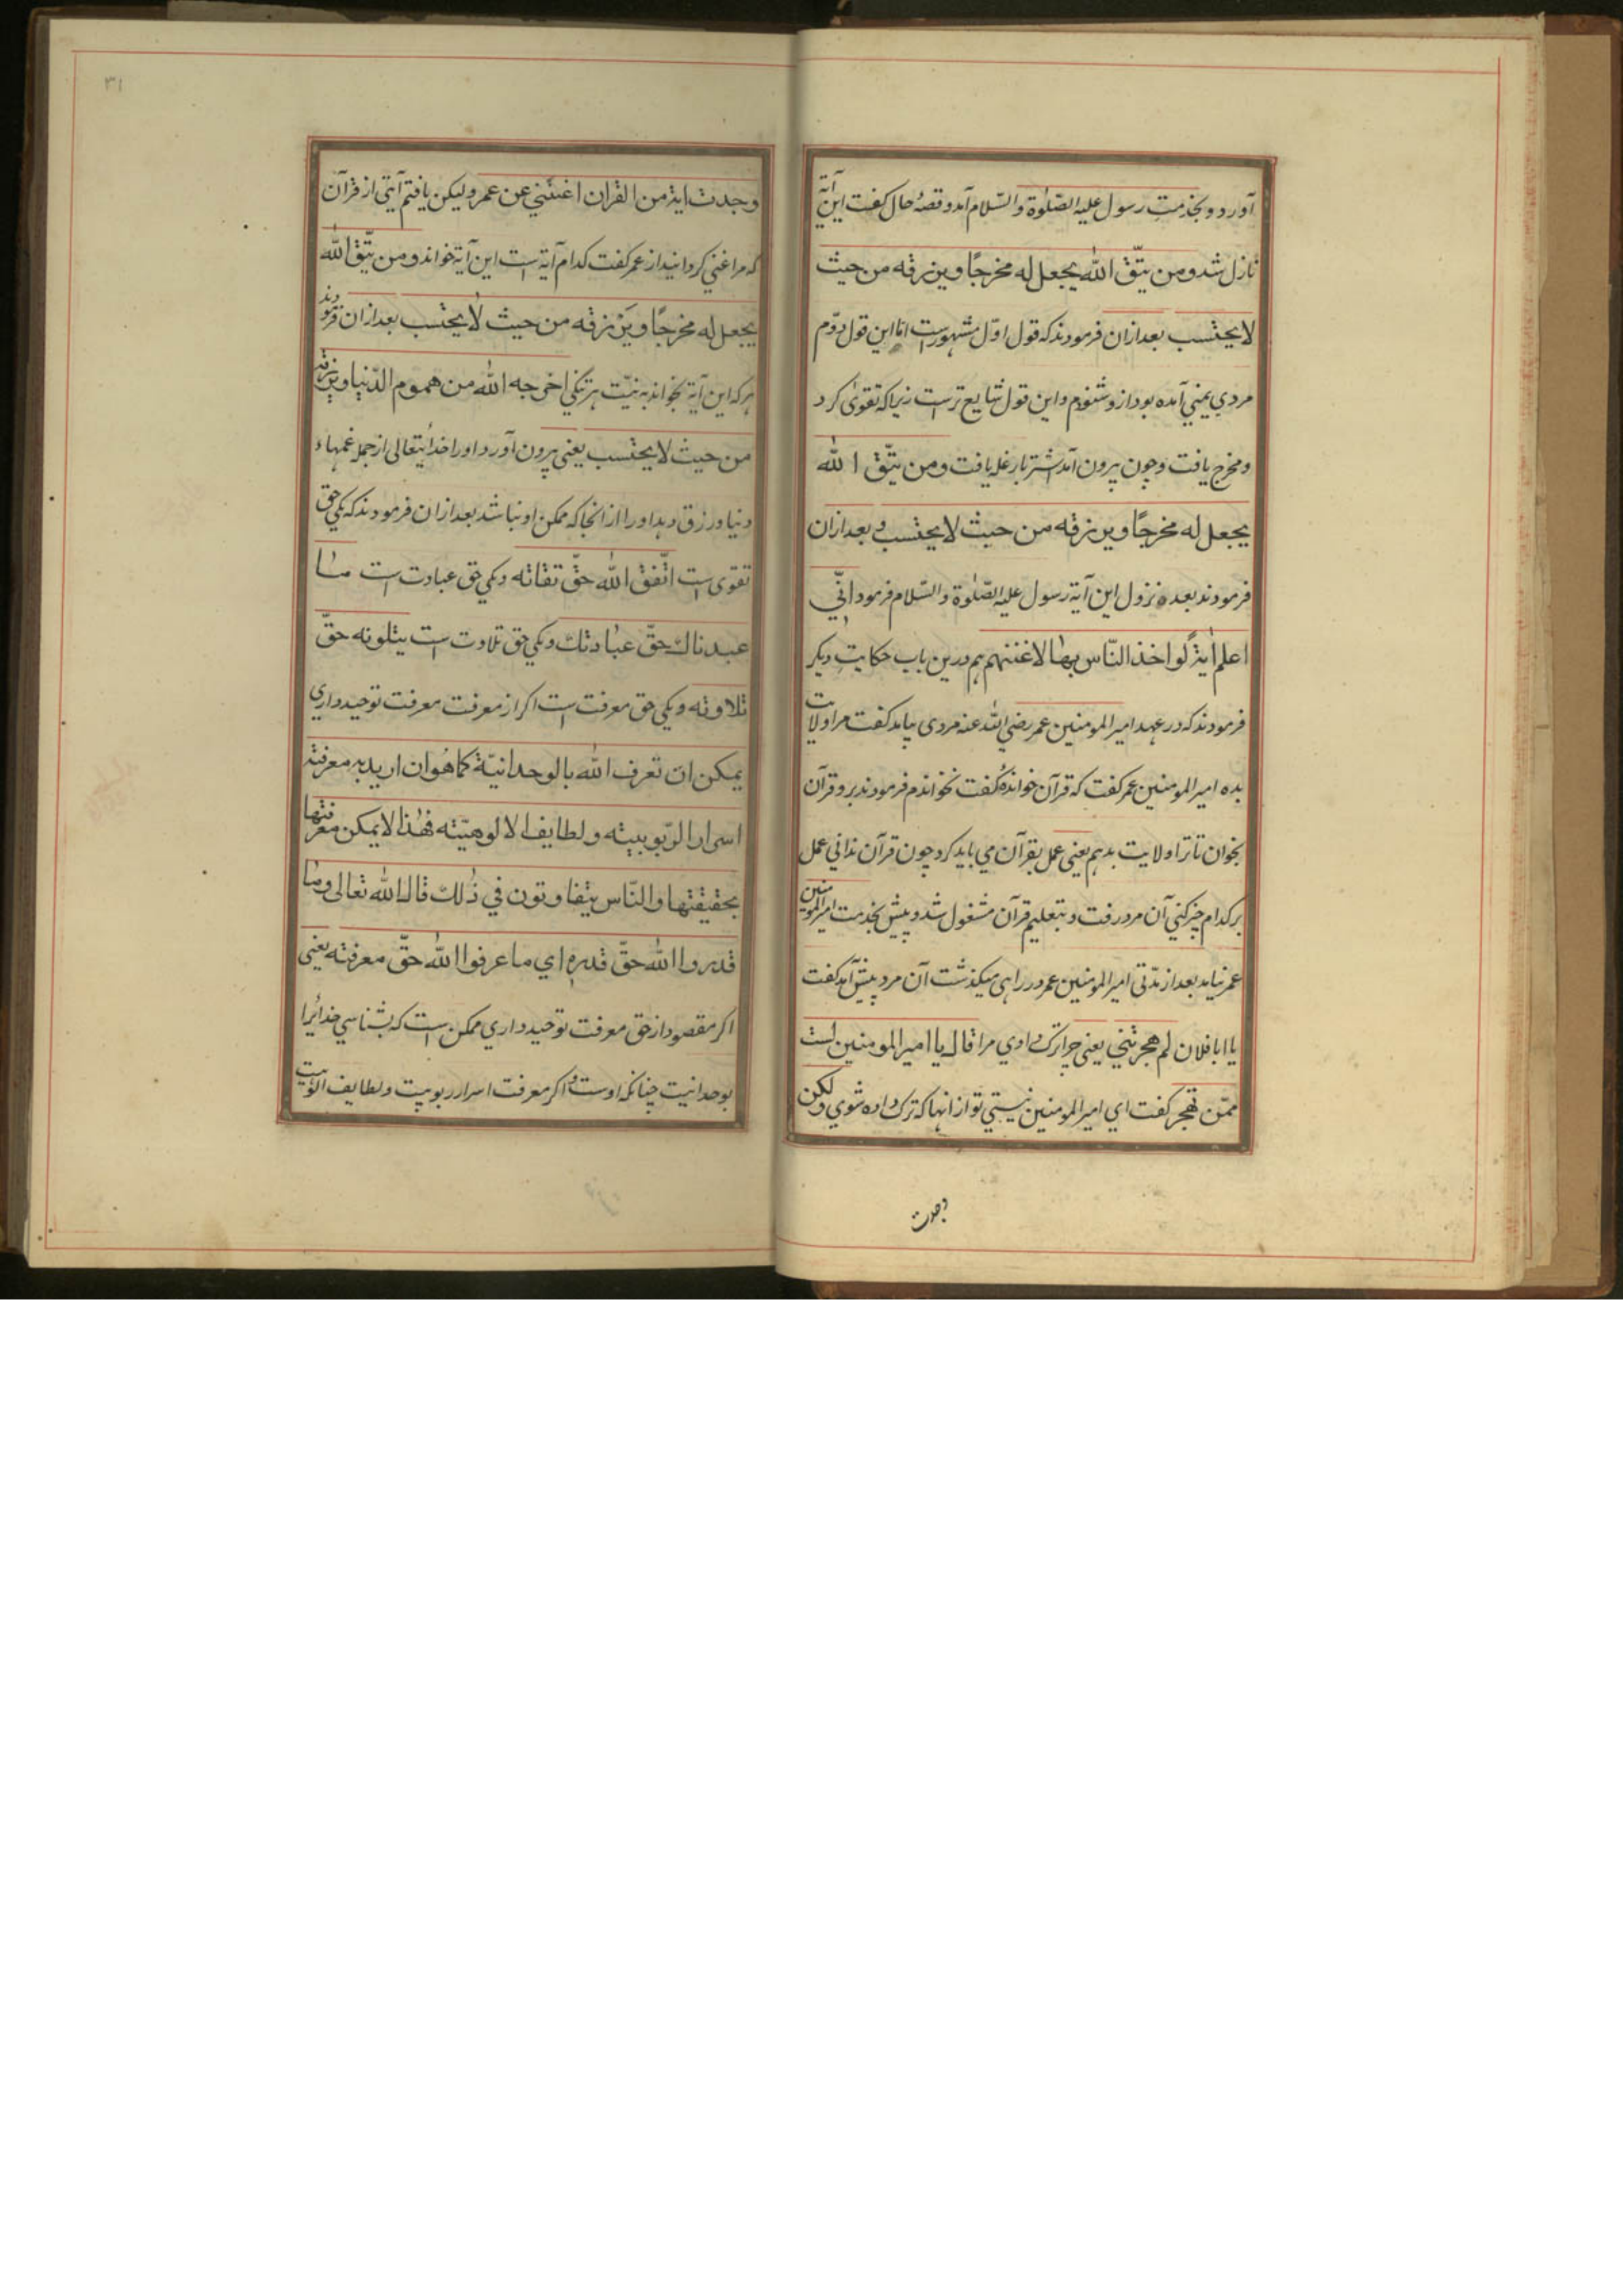 آورد و بخدمتِ رسول علیه الصّلوٰة والسّلام آمد و قصهٔ حال کفت این آیة
نازل شد و من یتّق اللّٰه یجعل له مخرجًا و یرزقه من حیث
لا یحتسب بعد ازان فرمودند که قول اوّل مشهورست امّا این قول دوّم
مردي یمني آمده بود ازو شنودم و این قول شایع ترست زیرا که تقویٰ کرد
و مخرج یافت و چون بیرون آمد اشتر بار غله یافت و من یتّق اللّٰه
یجعل له مخرجًا و یرزقه من حیث لا یحتسب و بعد ازان
فرمودند بعده نزول این آیة رسول علیه الصّلوٰة والسّلام فرمود انّي
اعلم اٰیةً لو اخذ النّاس بها لاغنتهم هم درین باب حکایتِ دیکر
فرمودند که در عهد امیر المومنین عمر رضي اللّٰه عنه مردی بیامد کفت مرا ولایت
بده امیر المومنین عمر کفت که قرآن خواندهٔ کفت نخواندم فرمودند برو قرآن
بخوان تا ترا ولایت بدهم یعنی عمل بقرآن مي باید کرد چون قرآن ندانی عمل
بر کدام چیز کني آن مرد رفت و بتعلیم قرآن مشغول شد و پیش بخدمت امیر المومنین
عمر نیامد بعد از مدّتی امیر المومنین عمر در راهی میکذشت آن مرد پیش آمد کفت
یا ابا فلان لم هجرتني یعنی چرا ترک دادي مرا قال یا امیر المومنین لست
ممّن تهجر کفت اي امیر المومنین نیستي تو از انها که ترک داده شوي ولکن
وجدت
۳۱
وجدت ایة من القران اغنتني عن عمر ولیکن یافتم آیتی از قرآن
که مرا غني کردانید از عمر کفت کدام آیة است این آیة خواند و من یتّق اللّٰه
یجعل له مخرجًا و یَرْزقه من حیث لا یحتسب بعد ازان فرمودند
هر که این آیة بخواند به نیّت هر تنکي اخرجه اللّٰه من هموم الدّنیا و یرزقه
من حیث لا یحتسب یعنی بیرون آورد او را خدایتعالی از جمله غمهاء
دنیا و رزق دهد او را از انجا که ممکن او نباشد بعد ازان فرمودند که یکي حق
تقوی است اتّقوا اللّٰه حقّ تقاته و یکي حق عبادت است ما
عبدناك حقّ عبادتك و یکي حق تلاوت است یتلونه حقّ
تلاوته و یکي حق معرفت است اکر از معرفت معرفت توحید داري
یمکن ان تعرف اللّٰه بالوحدانیّة کما هُو ان ارید به معرفة
اسرار الرّبوبیته و لطایف الالوهیّته فهٰذا لا یمکن معرفتها
بحقیقتها و النّاس یتفاوتون في ذٰلك قال اللّٰه تعالی و ما
قدروا اللّٰه حقّ قدره اي ما عرفوا اللّٰه حقّ معرفته یعنی
اکر مقصود از حق معرفت توحید داري ممکن است که بشناسي خدایرا
بوحدانیت چنانکه اوست و اکر معرفت اسرار ربوبیت و لطایف الوهیت